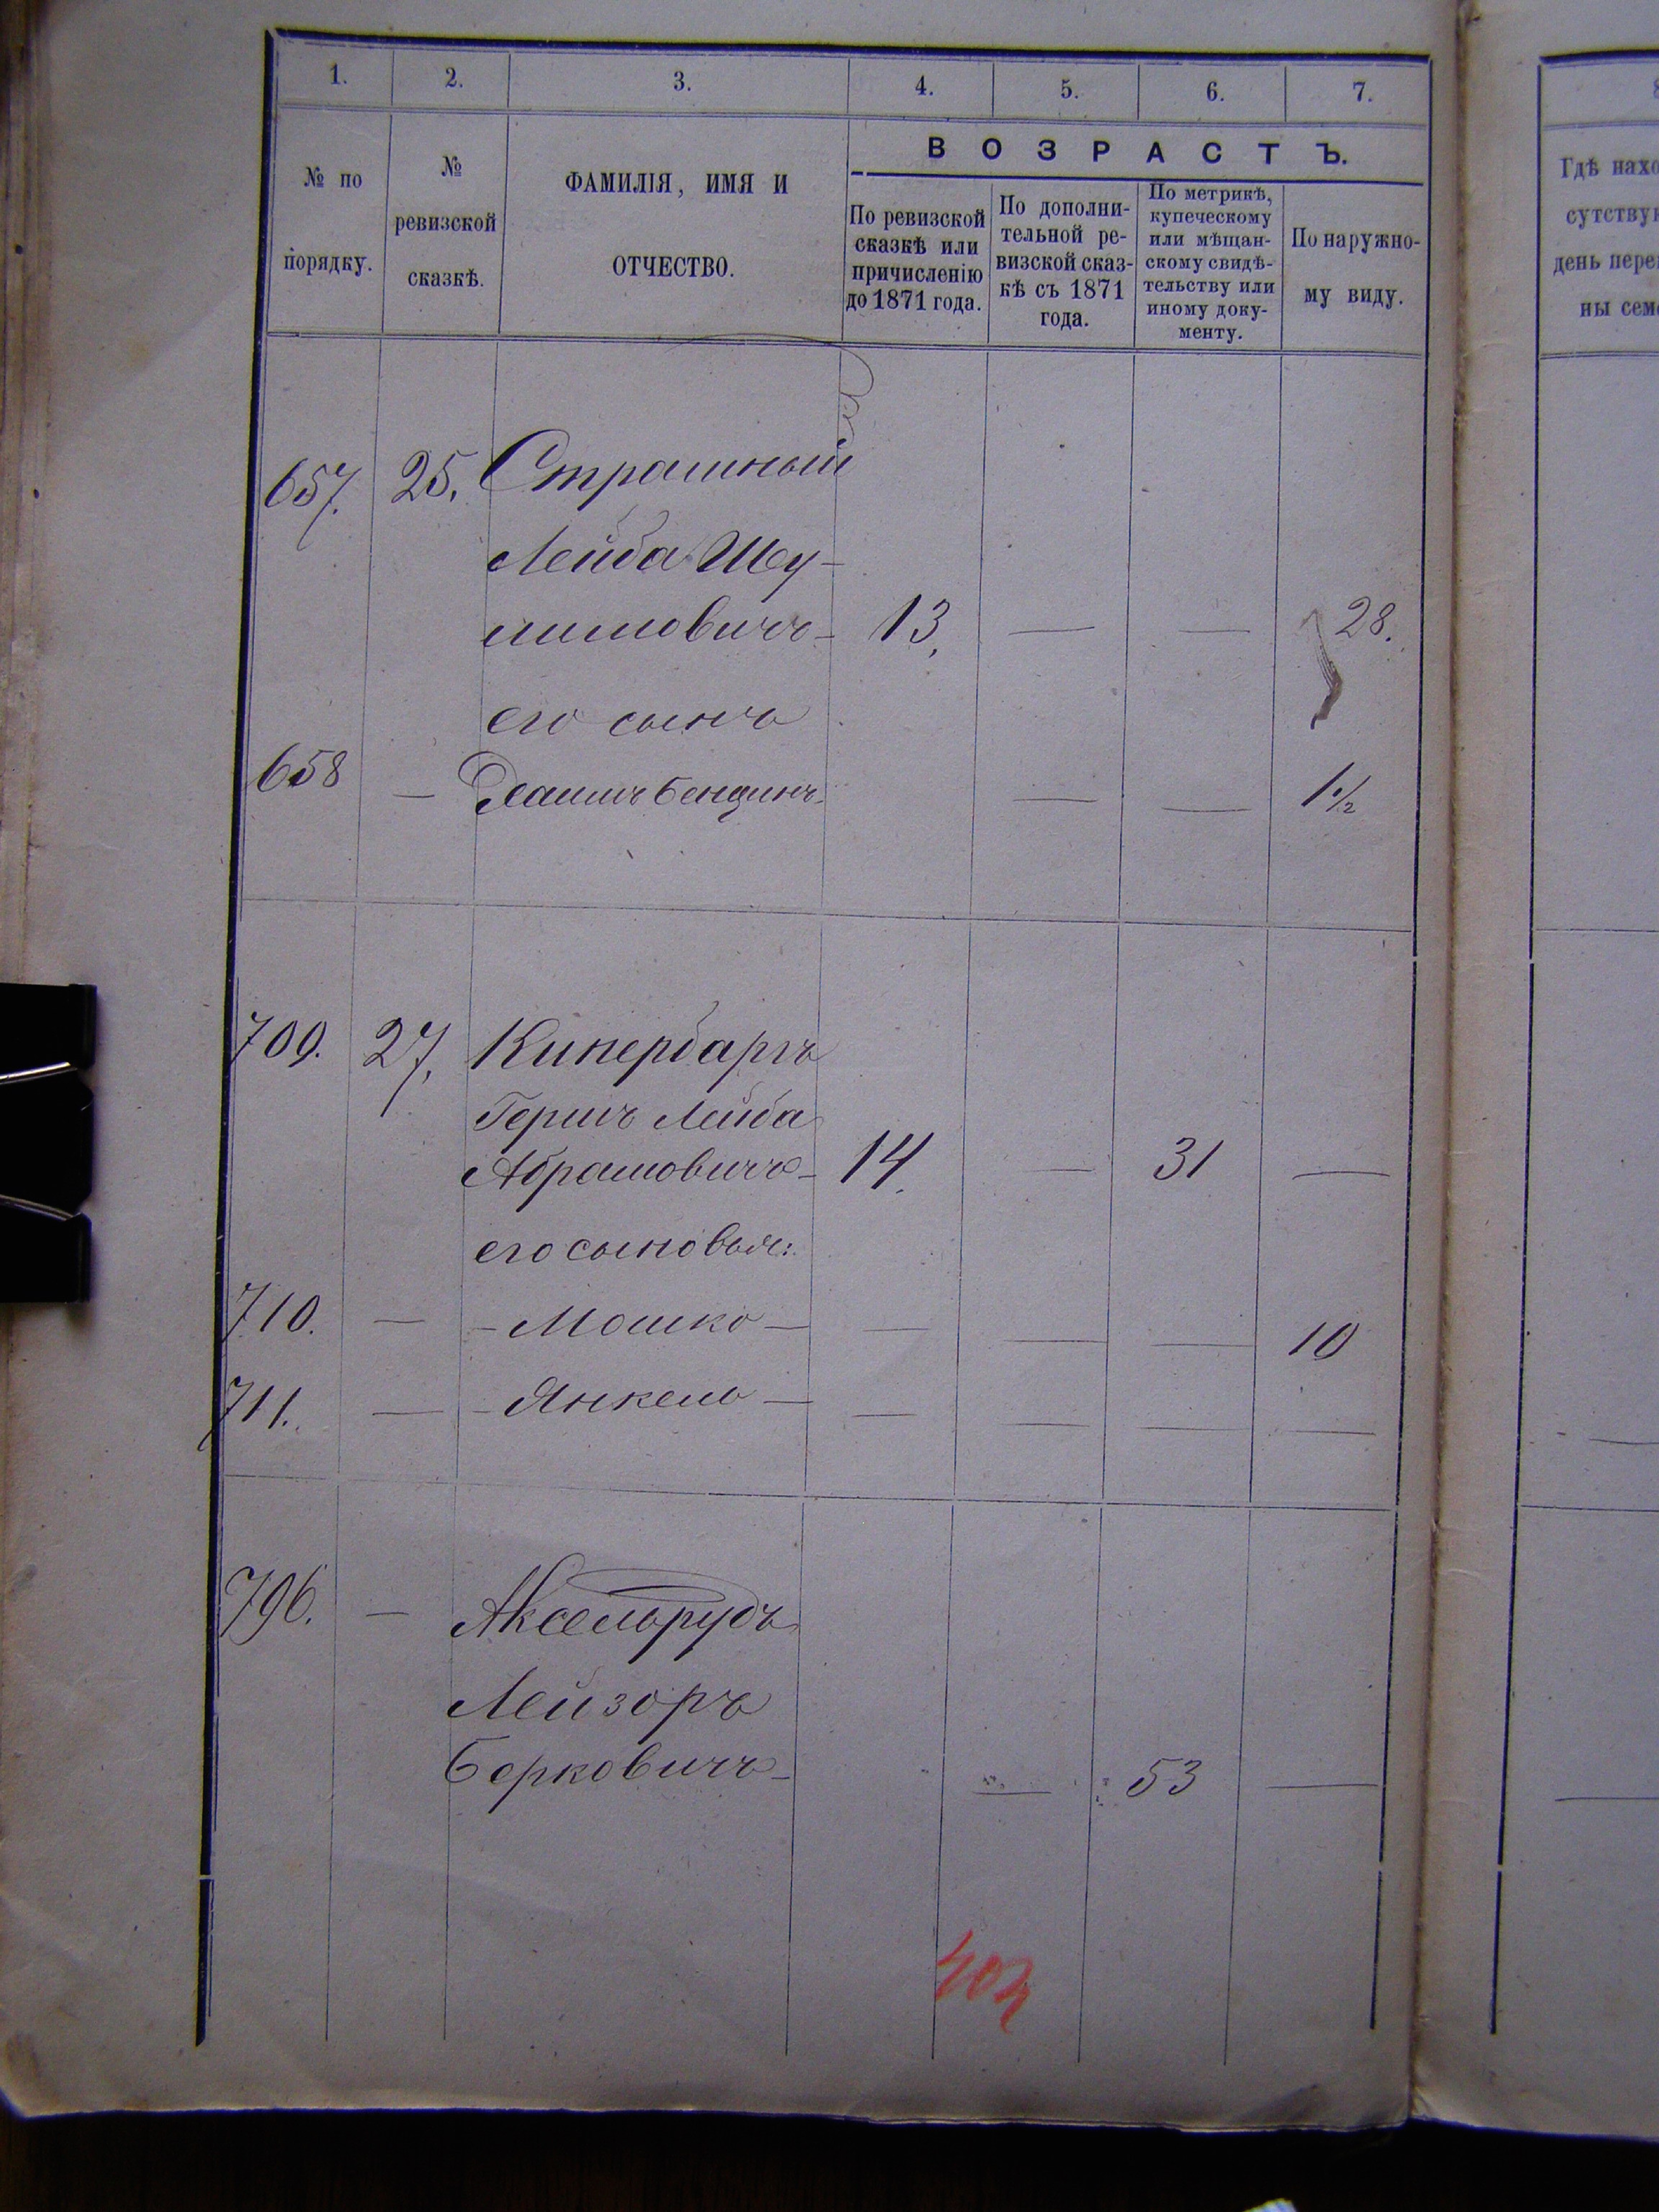 1. 2. 3. 4. 5. 6. 7.
№ по порядку.
№ ревизской сказкѣ.
ФАМИЛІЯ, ИМЯ И ОТЧЕСТВО.
ВОЗРАСТЪ.
По ревизской сказкѣ или причисленію до 1871 года.
По дополни-тельной ре-визской сказ-кѣ съ 1871 года.
По метрикѣ, купеческому или мѣщан-скому свидѣ-тельству или иному доку-менту.
По наружно-му виду.
Гдѣ нахо
сутствую
день пере
ны сем
657. 25. Страшный
Лейба Шу-
лимовичъ - 13. — — 28.
его сынъ
658 — — — 1 1/2
709. 27. Кипербаргъ
Гершъ Лейба
Абрамовичъ - 14. — 31 —
его сыновья:
710. — - Мошко — — — — 10
711. — - Янкель — — — — —
796. — Аксельрудъ
Лейзоръ
Берковичъ - — 53 —